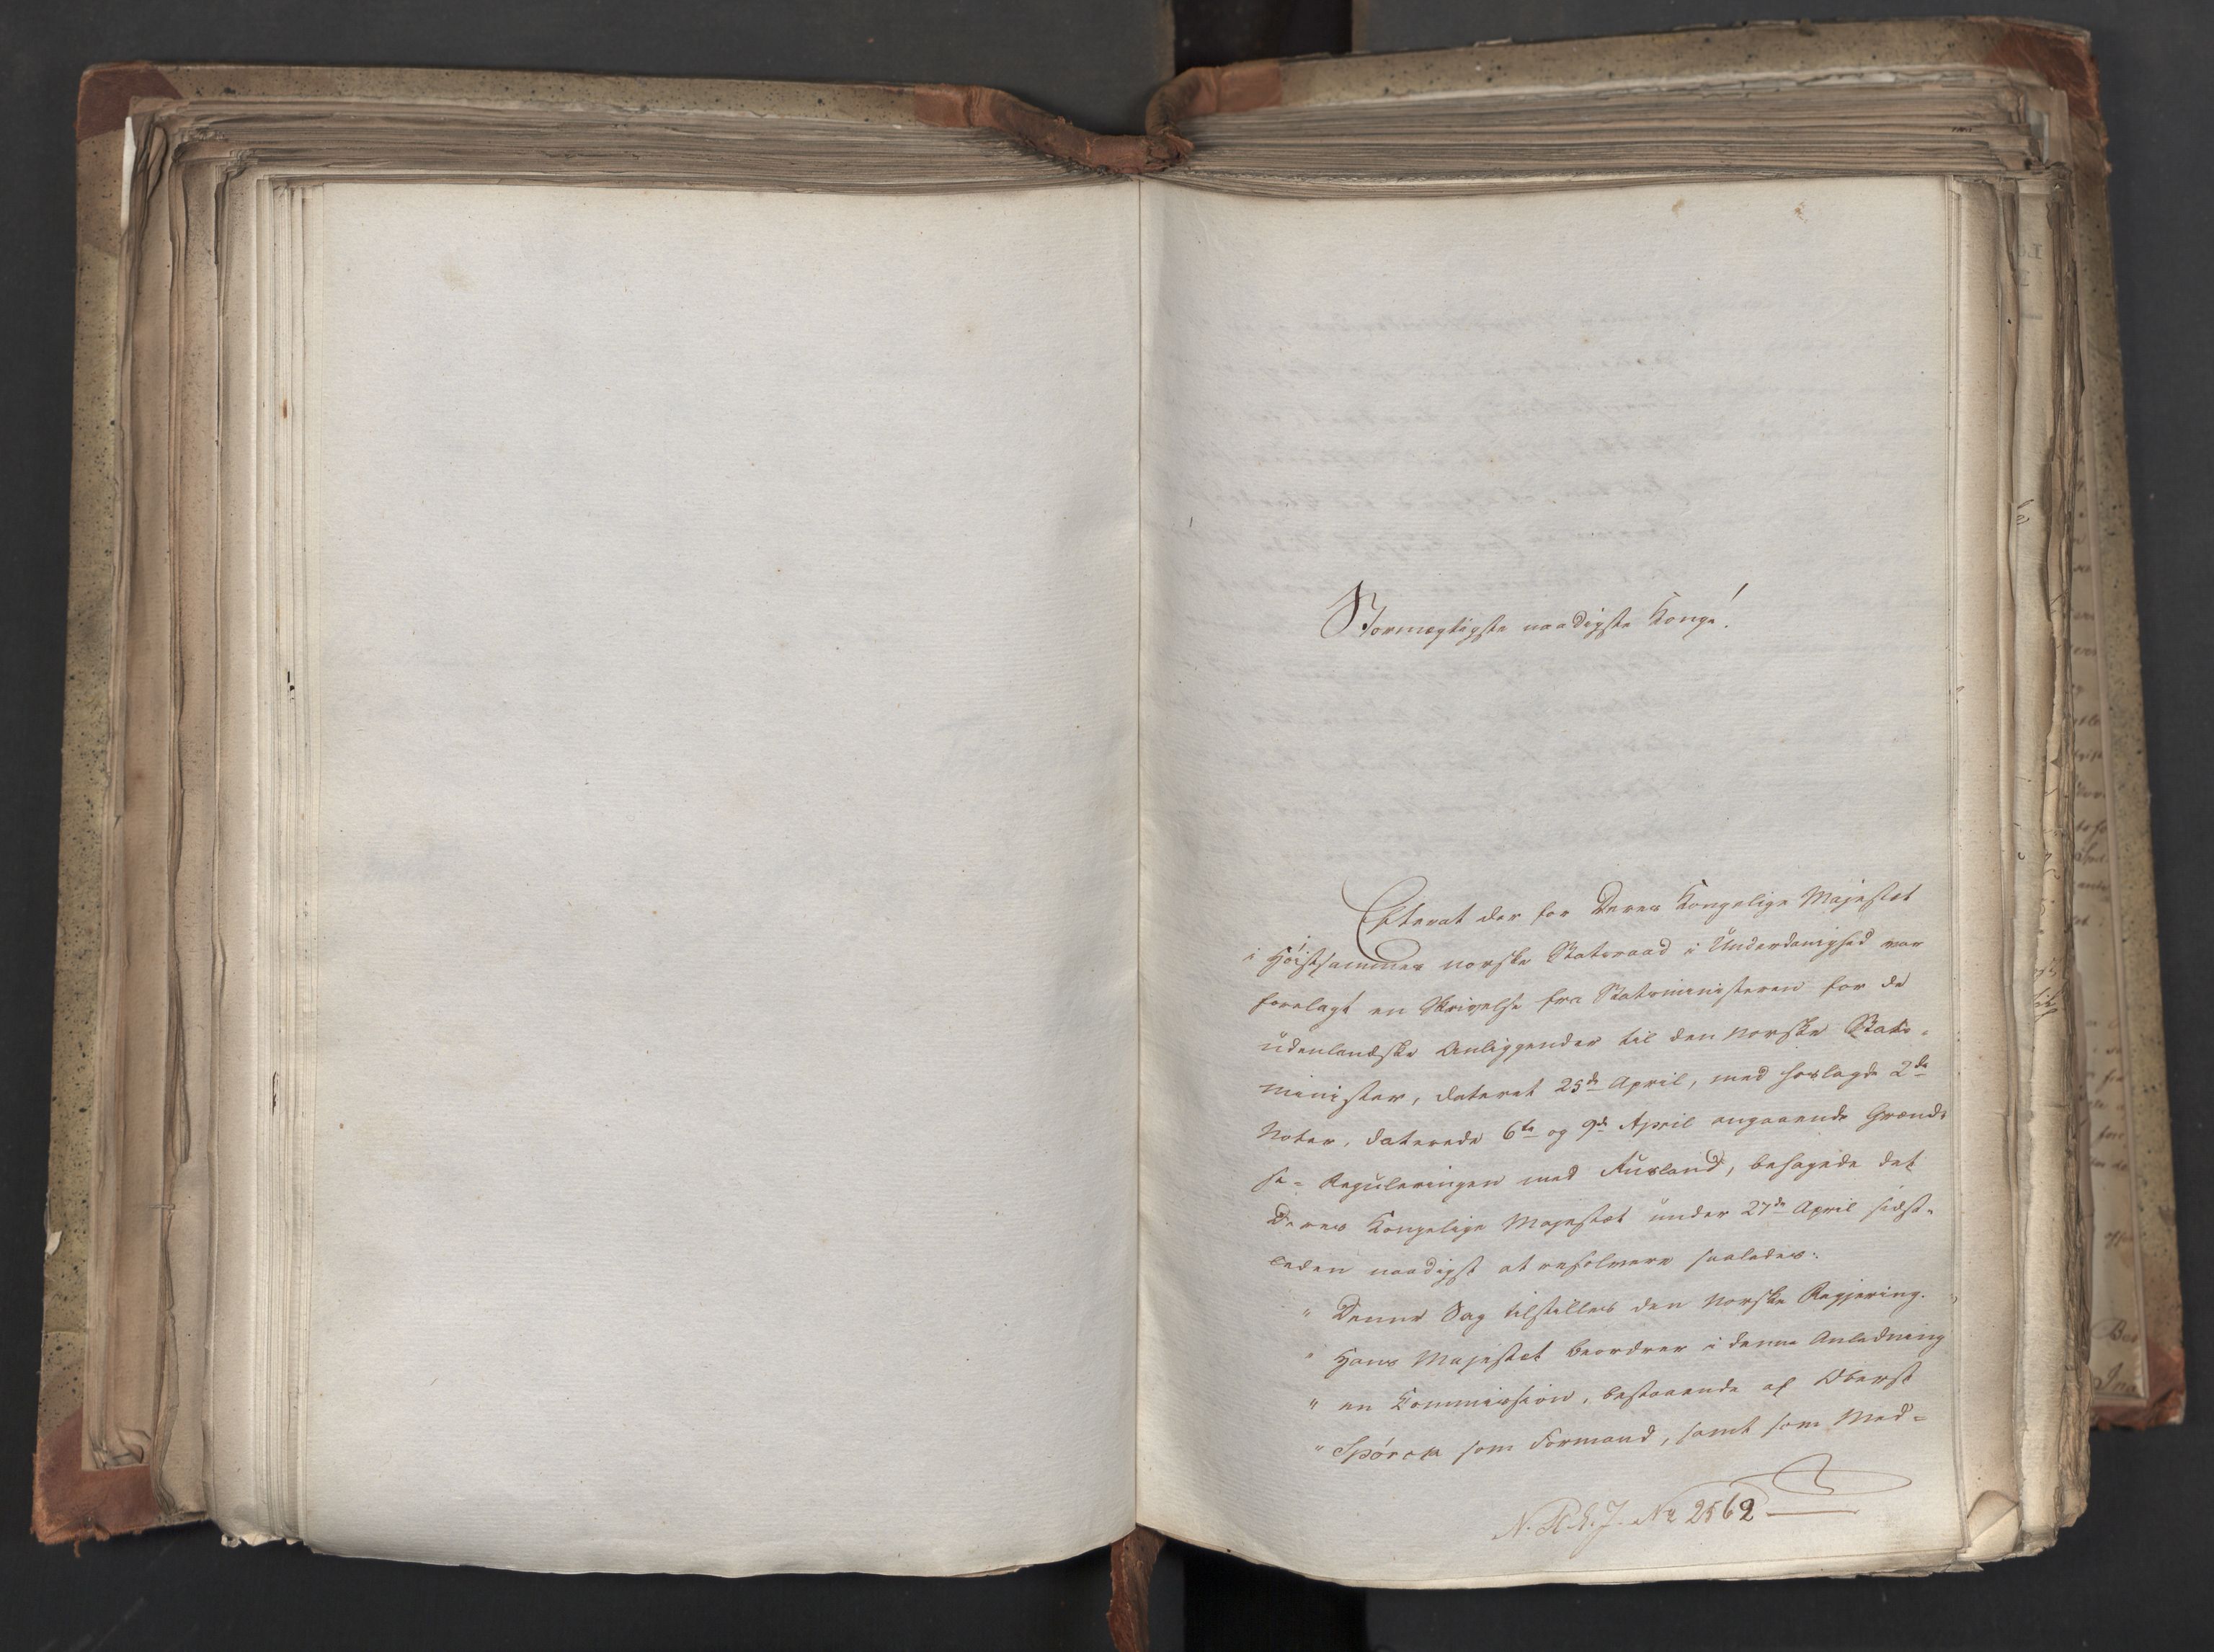 Stormægtigste naadigste Konge!
Efterat der for Deres Kongelige Majestet
i Höistsammes norske Statsraad i Underdanighed var
forelagt en Skrivelse fra Statsministeren for de
udenlandske Anliggender til den norske Stats-
minister, dateret 25de April, med hoslagde 2de
Noter, daterede 6te og 9de April angaaende Grænd-
se-Reguleringen med Rusland, behagede det
Deres Kongelige Majestet under 27de April sidst-
leden naadigst at resolvere saaledes:
" Denne Sag tilstilles den norske Regjering.
" Hans Majestet beordrer i denne Anledning
" en Commission, bestaaende af Oberst
" Spörck som Formand, samt som Med-
N. St. S. J. No 2562